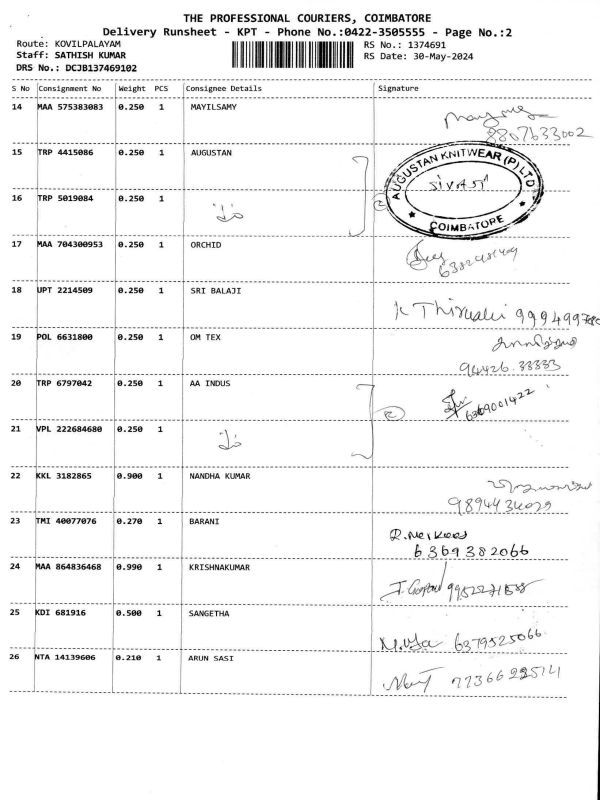 THE PROFESSIONAL COURIERS, COIMBATORE
Delivery Runsheet - KPT - Phone No.:0422-3505555 - Page No.:2
Route: KOVILPALAYAM RS No.: 1374691
Staff: SATHISH KUMAR RS Date: 30-May-2024
DRS No.: DCJB137469102
S No Consignment No Weight PCS Consignee Details Signature
14 MAA 575383083 0.250 1 MAYILSAMY
8807633002
15 TRP 4415086 0.250 1 AUGUSTAN
AUGUSTAN KNITWEAR (P) LTD
SIVAJI
COIMBATORE
16 TRP 5019084 0.250 1
17 MAA 704300953 0.250 1 ORCHID
18 UPT 2214509 0.250 1 SRI BALAJI
19 POL 6631800 0.250 1 OM TEX
94426.33333
20 TRP 6797042 0.250 1 AA INDUS
6369001422
21 VPL 222684680 0.250 1
22 KKL 3182865 0.900 1 NANDHA KUMAR
9894434029
23 TMI 40077076 0.270 1 BARANI
6369382066
24 MAA 864836468 0.990 1 KRISHNAKUMAR
25 KDI 681916 0.500 1 SANGETHA
6379525066
26 NTA 14139606 0.210 1 ARUN SASI